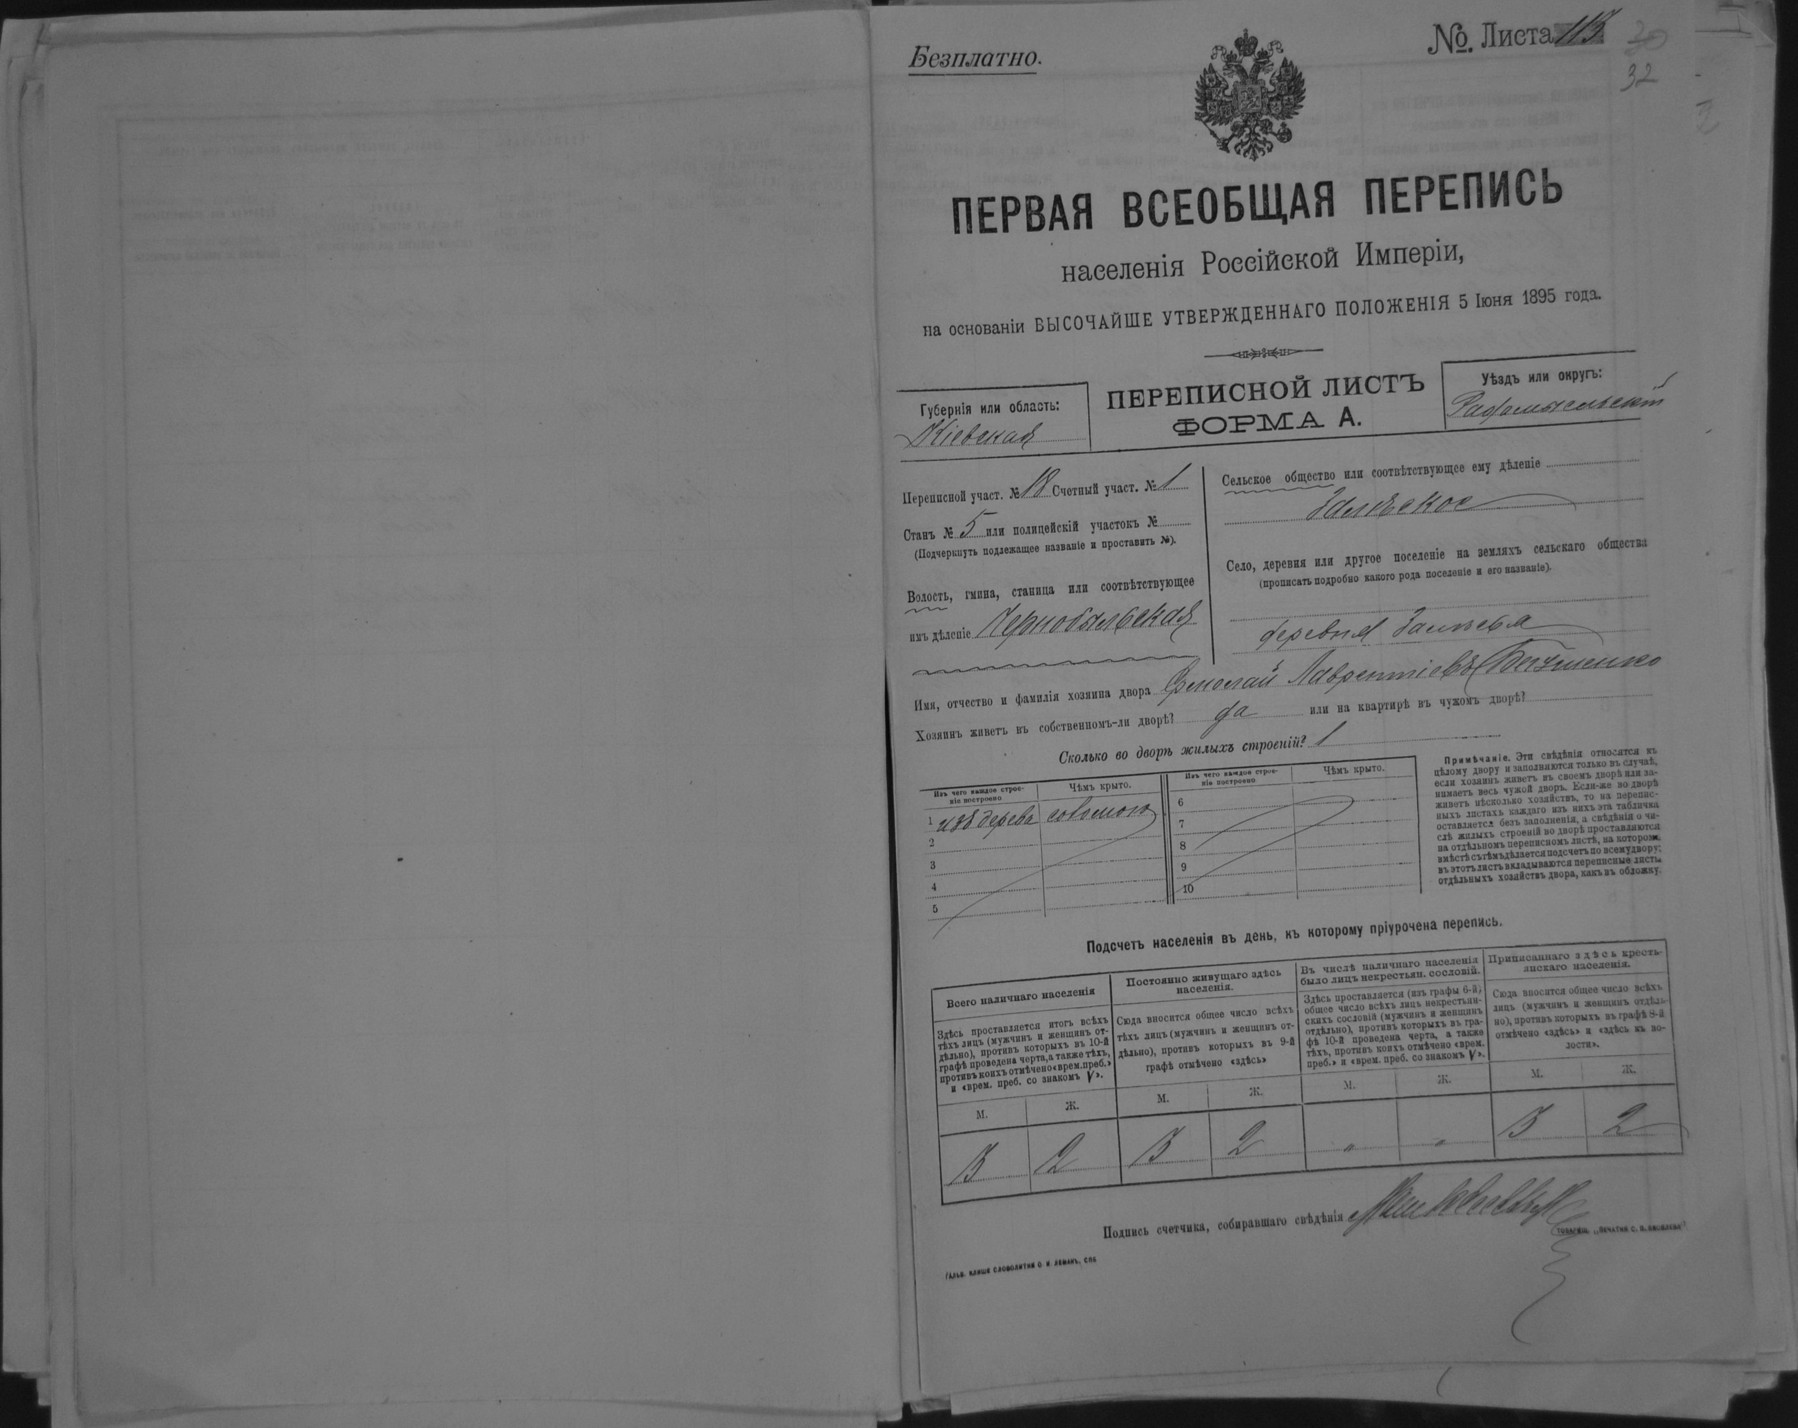 Безплатно.
№. Листа 113
30
32
2
ПЕРВАЯ ВСЕОБЩАЯ ПЕРЕПИСЬ
населенія Россійской Имперіи,
на основаніи ВЫСОЧАЙШЕ УТВЕРЖДЕННАГО ПОЛОЖЕНІЯ 5 Іюня 1895 года.
Губернія или область:
Кіевская
ПЕРЕПИСНОЙ ЛИСТЪ
ФОРМА А.
Уѣздъ или округъ:
Радомысльскій
Переписной участ. № 18 Счетный участ. № 1
Станъ № 5 или полицейскій участокъ №
(Подчеркнуть подлежащее названіе и проставить №).
Волость, гмина, станица или соотвѣтствующее
имъ дѣленіе Чернобыльская
Сельское общество или соотвѣтствующее ему дѣленіе
Залѣское
Село, деревня или другое поселеніе на земляхъ сельскаго общества
(прописать подробно какого рода поселеніе и его названіе).
деревня Залѣсья
Имя, отчество и фамилія хозяина двора Лаврентіевъ
Хозяинъ живетъ въ собственномъ-ли дворѣ? да или на квартирѣ въ чужомъ дворѣ?
Сколько во дворѣ жилыхъ строеній? 1
Изъ чего каждое строе-
ніе построено
Чѣмъ крыто.
1 изъ дерева соломою
2
3
4
5
Изъ чего каждое строе-
ніе построено
Чѣмъ крыто.
6
7
8
9
10
Примѣчаніе. Эти свѣдѣнія относятся къ
цѣлому двору и заполняются только въ случаѣ,
если хозяинъ живетъ въ своемъ дворѣ или за-
нимаетъ весь чужой дворъ. Если-же во дворѣ
живетъ нѣсколько хозяйствъ, то на перепис-
ныхъ листахъ каждаго изъ нихъ эта табличка
оставляется безъ заполненія, а свѣдѣнія о чи-
слѣ жилыхъ строеній во дворѣ проставляются
на отдѣльномъ переписномъ листѣ, на которомъ
вмѣстѣ съ тѣмъ дѣлается подсчетъ по всему двору;
въ этотъ листъ вкладываются переписные листы
отдѣльныхъ хозяйствъ двора, какъ въ обложку.
Подсчетъ населенія въ день, къ которому пріурочена перепись.
Всего наличнаго населенія
Здѣсь проставляется итогъ всѣхъ
тѣхъ лицъ (мужчинъ и женщинъ от-
дѣльно), противъ которыхъ въ 10-й
графѣ проведена черта, а также тѣхъ,
противъ коихъ отмѣчено «врем. преб.»
и «врем. преб. со знакомъ V».
М. Ж.
3 2
Постоянно живущаго здѣсь
населенія.
Сюда вносится общее число всѣхъ
тѣхъ лицъ (мужчинъ и женщинъ от-
дѣльно), противъ которыхъ въ 9-й
графѣ отмѣчено «здѣсь»
М. Ж.
3 2
Въ числѣ наличнаго населенія
было лицъ некрестьян. сословій.
Здѣсь проставляется (изъ графы 6-й)
общее число всѣхъ лицъ некрестьян-
скихъ сословій (мужчинъ и женщинъ
отдѣльно), противъ которыхъ въ гра-
фѣ 10-й проведена черта, а также
тѣхъ, противъ коихъ отмѣчено «врем.
преб.» и «врем. преб. со знакомъ V».
М. Ж.
" "
Приписаннаго здѣсь кресть-
янскаго населенія.
Сюда вносится общее число всѣхъ
лицъ (мужчинъ и женщинъ отдѣль-
но), противъ которыхъ въ графѣ 8-й
отмѣчено «здѣсь» и «здѣсь къ во-
лости».
М. Ж.
3 2
Подпись счетчика, собиравшаго свѣдѣнія
ГАЛЬВ. КЛИШЕ СЛОВОЛИТНИ О. И. ЛЕМАНЪ, СПБ
ТОВАРИЩ. „ПЕЧАТНЯ С. П. ЯКОВЛЕВА"